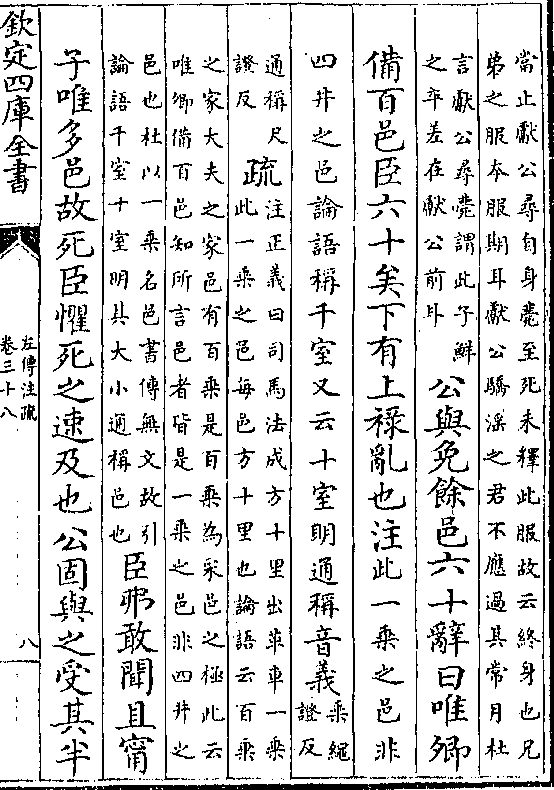 當止獻公尋自身薨至死未釋此服故云終身也兄
弟之服本服期耳獻公驕淫之君不應過其常月杜
言獻公尋薨謂此子鮮
之卒差在獻公前耳
公與免餘邑六十辭曰唯卿
備百邑臣六十矣下有上祿亂也注此一乗之邑非
四井之邑論語稱千室又云十室明通稱音義
乘繩
證反
通稱尺
證反
疏
注正義曰司馬法成方十里出革車一乗
此一乗之邑每邑方十里也論語云百乗
之家大夫之家邑有百乗是百乗為采邑之極此云
唯卿備百邑知所言邑者皆是一乗之邑非四井之
邑也杜以一乗名邑書傳無文故引
論語千室十室明其大小通稱邑也
臣弗敢聞且甯
子唯多邑故死臣懼死之速及也公固與之受其半
欽定四庫全書
左傳注疏
卷三十八
八